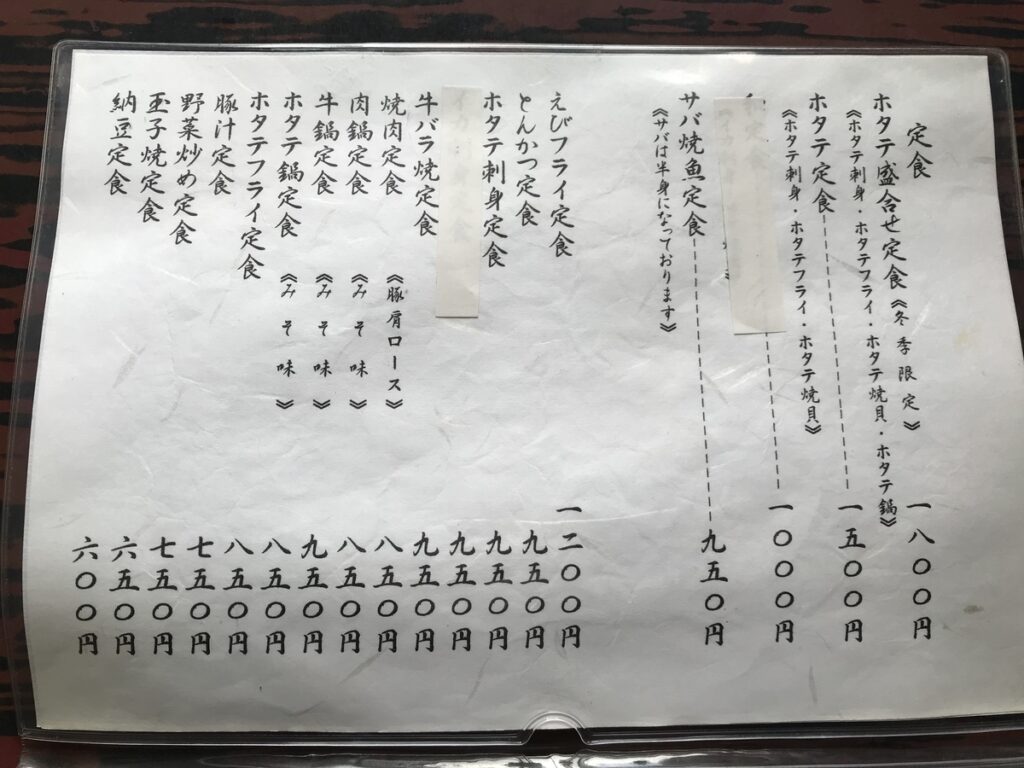 定食
ホタテ盛合せ定食《冬季限定》 一八〇〇円
《ホタテ刺身・ホタテフライ・ホタテ焼貝・ホタテ鍋》
ホタテ定食 一五〇〇円
《ホタテ刺身・ホタテフライ・ホタテ焼貝》
一〇〇〇円
サバ焼魚定食 九五〇円
《サバは半身になっております》
えびフライ定食 一二〇〇円
とんかつ定食 九五〇円
ホタテ刺身定食 九五〇円
九五〇円
牛バラ焼定食 九五〇円
焼肉定食 《豚肩ロース》 八五〇円
肉鍋定食 《みそ味》 八五〇円
牛鍋定食 《みそ味》 九五〇円
ホタテ鍋定食 《みそ味》 八五〇円
ホタテフライ定食 八五〇円
豚汁定食 七五〇円
野菜炒め定食 七五〇円
玉子焼定食 六五〇円
納豆定食 六〇〇円